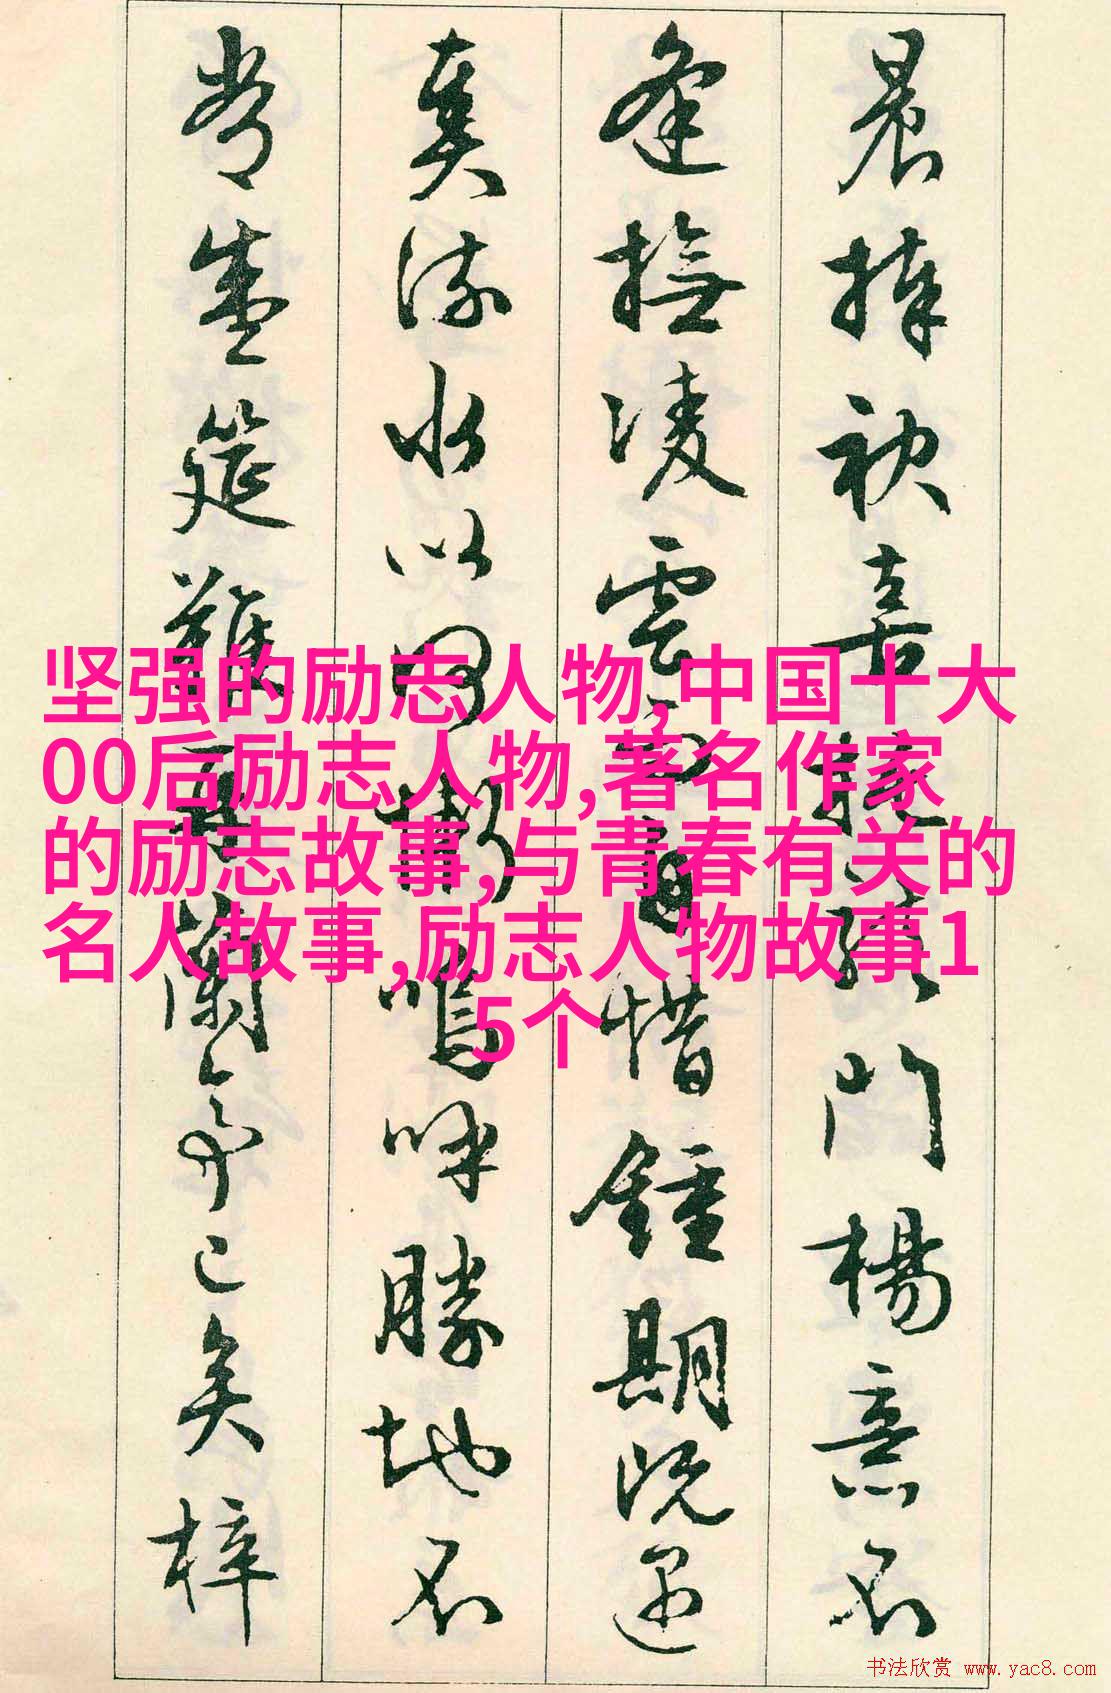 晨捧袂喜托龍門楊意不
逢撫凌雲而自惜鍾期既遇
奏流水以何慚嗚呼勝地不
常盛筵難再蘭亭已矣梓
坚强的励志人物,中国十大
00后励志人物,著名作家
的励志故事,与青春有关的
名人故事,励志人物故事1
5个
书法欣赏 www.yac8.com